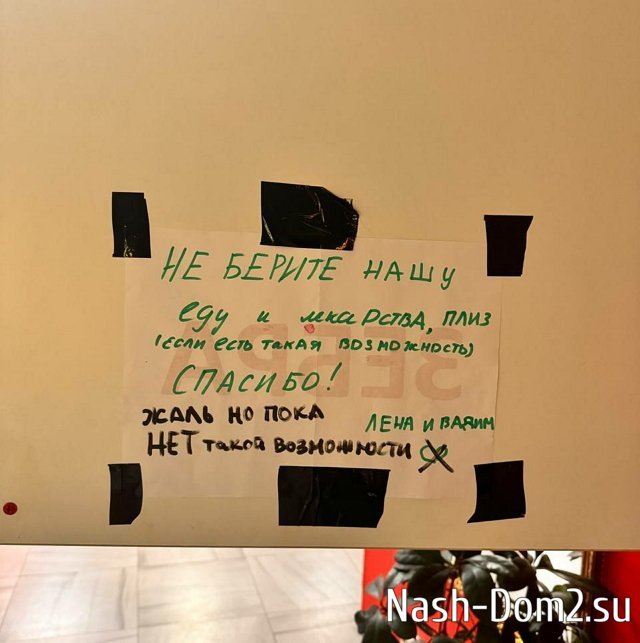 НЕ БЕРИТЕ НАШУ
еду и лекарства, плиз
(если есть такая возможность)
СПАСИБО!
ЛЕНА И ВАДИМ
ЖАЛЬ НО ПОКА
НЕТ такой возможности
ЗЕБРА
Nash-Dom2.su